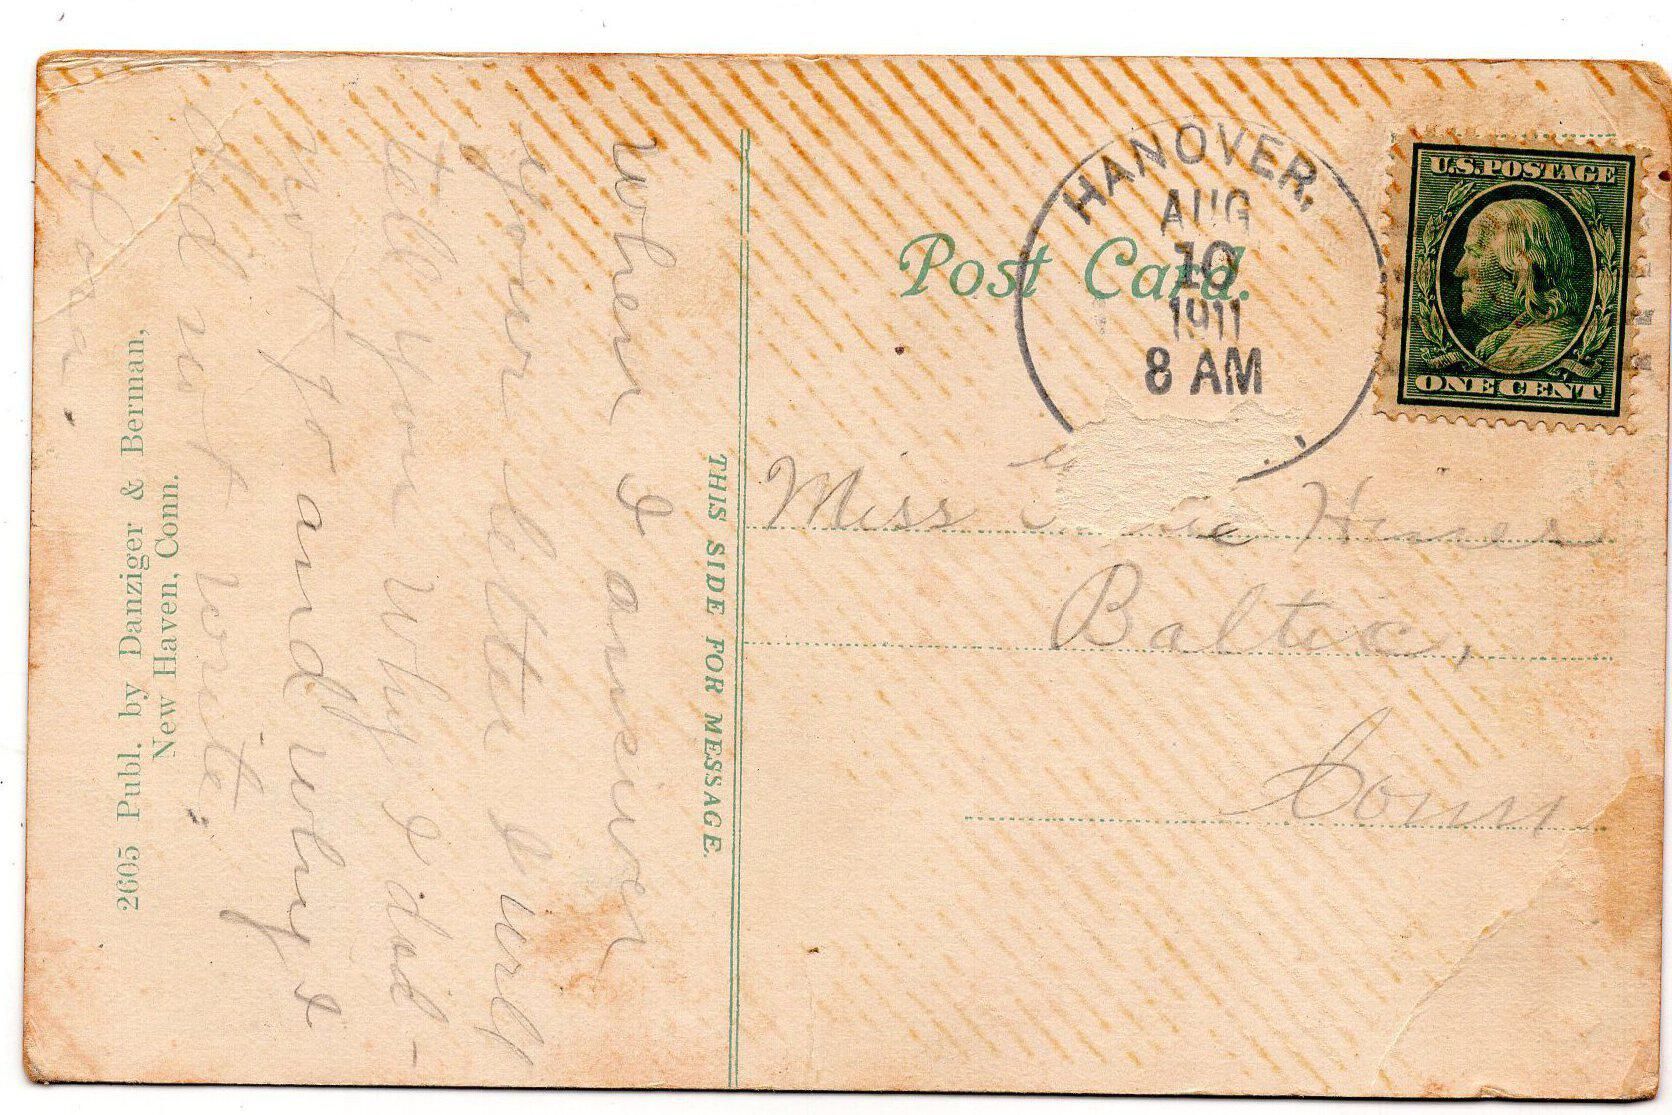 When I answer
your letter I will
tell you why I did
not go and why I
did not write.
Post Card.
HANOVER,
AUG
10
1911
8 AM
U.S. POSTAGE
ONE CENT
THIS SIDE FOR MESSAGE.
Miss
Baltic,
Conn
2605 Publ. by Danziger & Berman,
New Haven, Conn.